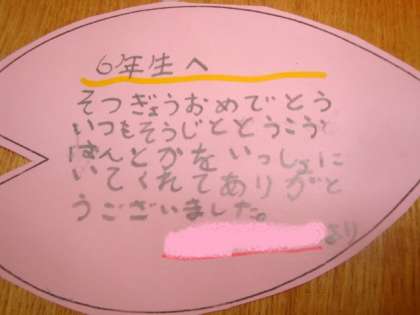 6年生へ
そつぎょうおめでとう
いつもそうじととうこうと
はんとかをいっしょに
いてくれてありがと
うございました。
より